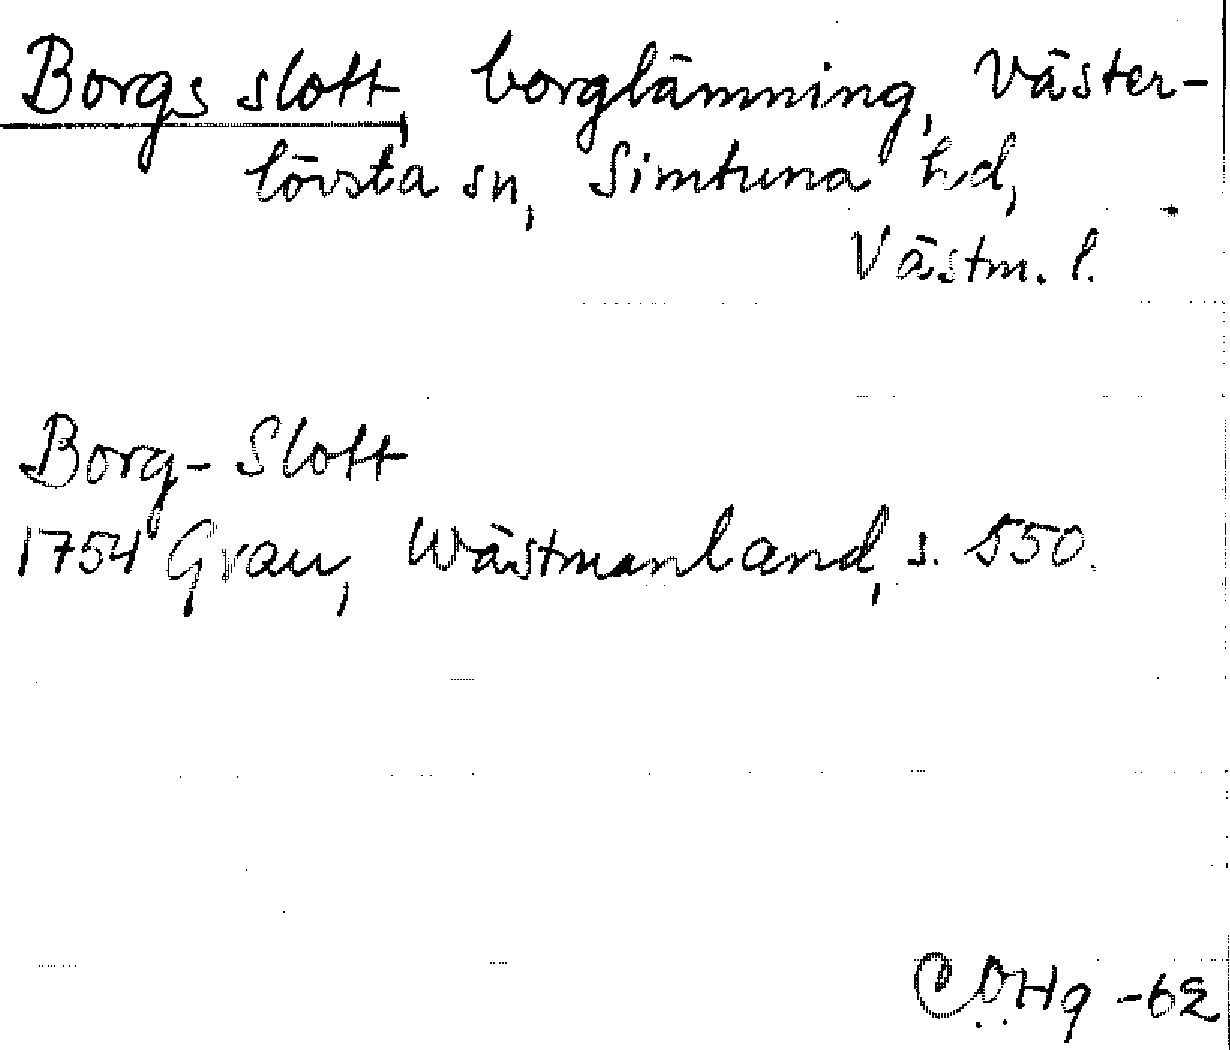 Borgs slott, borglämning, Väster-
lövsta sn, Simtuna hd,
Västm. l.
Borg-Slott
1754 Grau, Wästmanland, s. 550.
-62